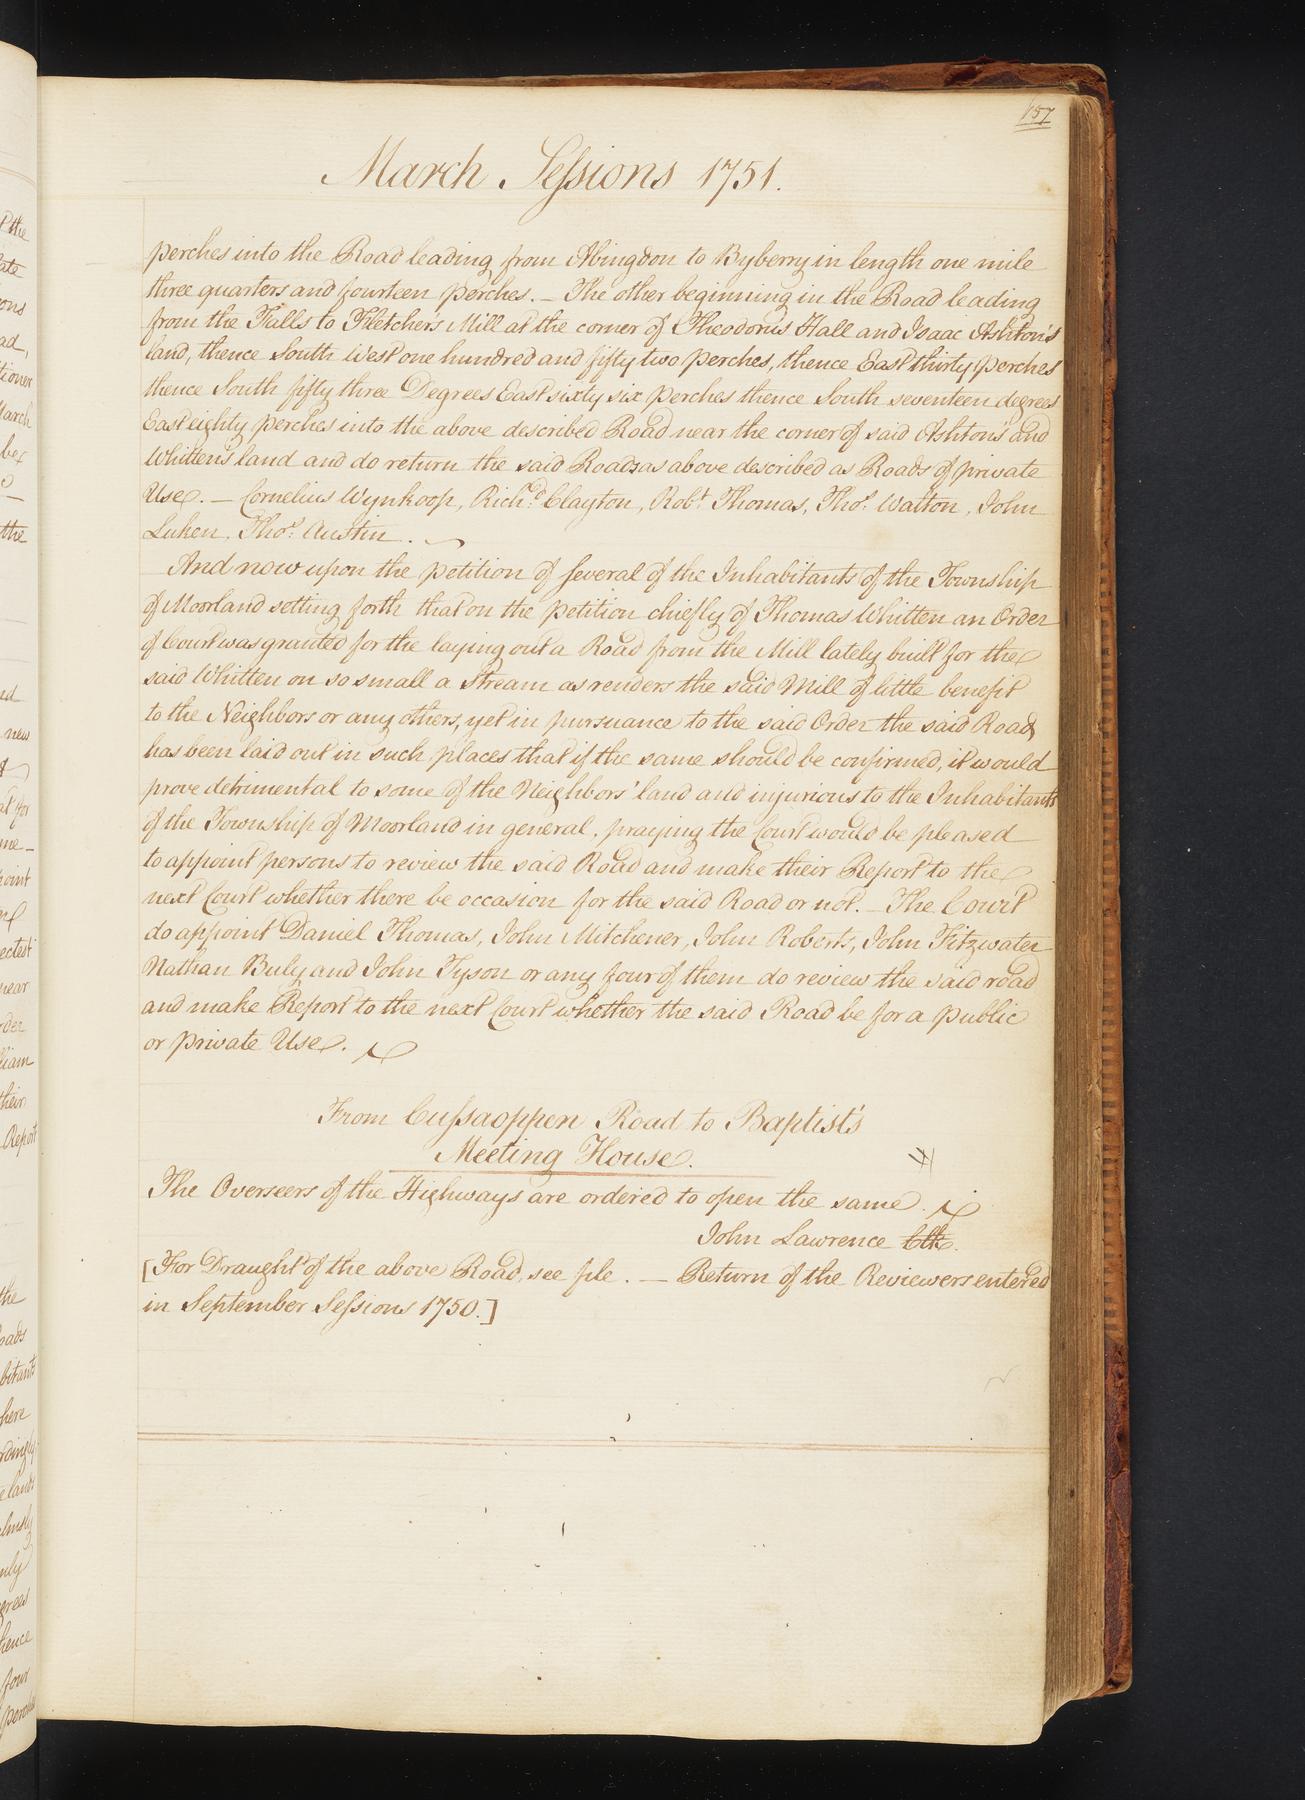 157
March Seſsions 1751.
perches into the Road leading from Abingdon to Byberry in length one mile
three quarters and fourteen perches. — The other beginning in the Road leading
from the Falls to Fletcher's Mill at the corner of Theodorus Hall and Isaac Ashton's
land, thence South West one hundred and fifty two perches, thence East thirty perches
thence South fifty three Degrees East sixty six perches thence South seventeen degrees
East eighty perches into the above described Road near the corner of said Ashton's and
Whitten's land and do return the said Roads as above described as Roads of private
Use. — Cornelius Wynkoop, Rich.d Clayton, Rob.t Thomas, Tho.s Watton, John
Luken, Tho.s Austin.
And now upon the petition of several of the Inhabitants of the Township
of Moorland setting forth that on the petition chiefly of Thomas Whitten an Order
of Court was granted for the laying out a Road from the Mill lately built for the
said Whitten on so small a stream as renders the said Mill of little benefit
to the Neighbors or any others, yet in pursuance to the said Order the said Road
has been laid out in such places that if the same should be confirmed, it would
prove detrimental to some of the Neighbors' land and injurious to the Inhabitants
of the Township of Moorland in general, praying the Court would be pleased
to appoint persons to review the said Road and make their Report to the
next Court whether there be occasion for the said Road or not. — The Court
do appoint Daniel Thomas, John Mitchener, John Roberts, John Fitzwater
Nathan Buly and John Tyson or any four of them do review the said road
and make Report to the next Court whether the said Road be for a public
or private Use.
From Cuſsaoppen Road to Baptist's
Meeting House.
The Overseers of the Highways are ordered to open the same.
John Lawrence Clk.
[For Draught of the above Road, see file. — Return of the Reviewers entered
in September Seſsions 1750.]